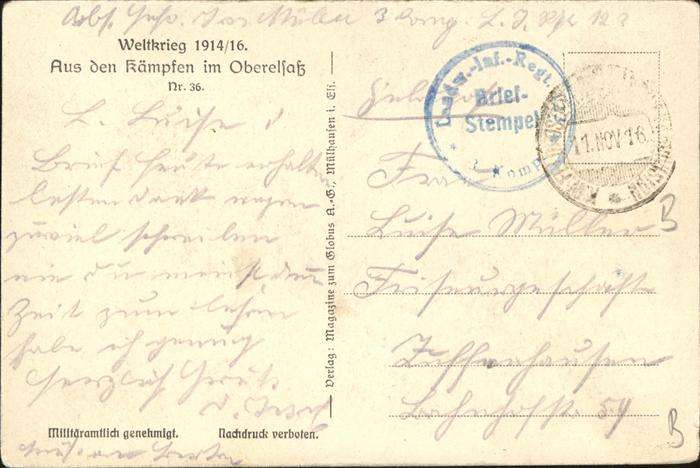 Abs. Gefr. Jos Müller 3 Komp. L. J. Rgt 123
Weltkrieg 1914/16.
Aus den Kämpfen im Oberelsaß
Nr. 36.
L. Luise!
Brief heute erhalten
besten Dank wegen
zuviel schreiben
wie du meinst denn
Zeit zum lesen
habe ich genug
herzlich Grüßt
d. Josef
Militäramtlich genehmigt. Nachdruck verboten.
Verlag: Magazine zum Globus A.-G., Mülhausen i. Els.
Landw.-Inf.-Regt. 123
Brief-
Stempel
Komp.
11.NOV 16
Feldpost
Frau
Luise Müller
Friseurgeschäft
Zuffenhausen
Bahnhofstr. 59
B
B